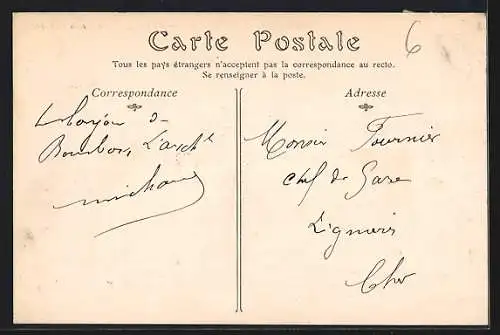 Carte Postale
6
Tous les pays étrangers n'acceptent pas la correspondance au recto.
Se renseigner à la poste.
Correspondance
Bourbon L'arch^t
Adresse
Monsieur Fournier
chef de Gare
Lignieres
Cher